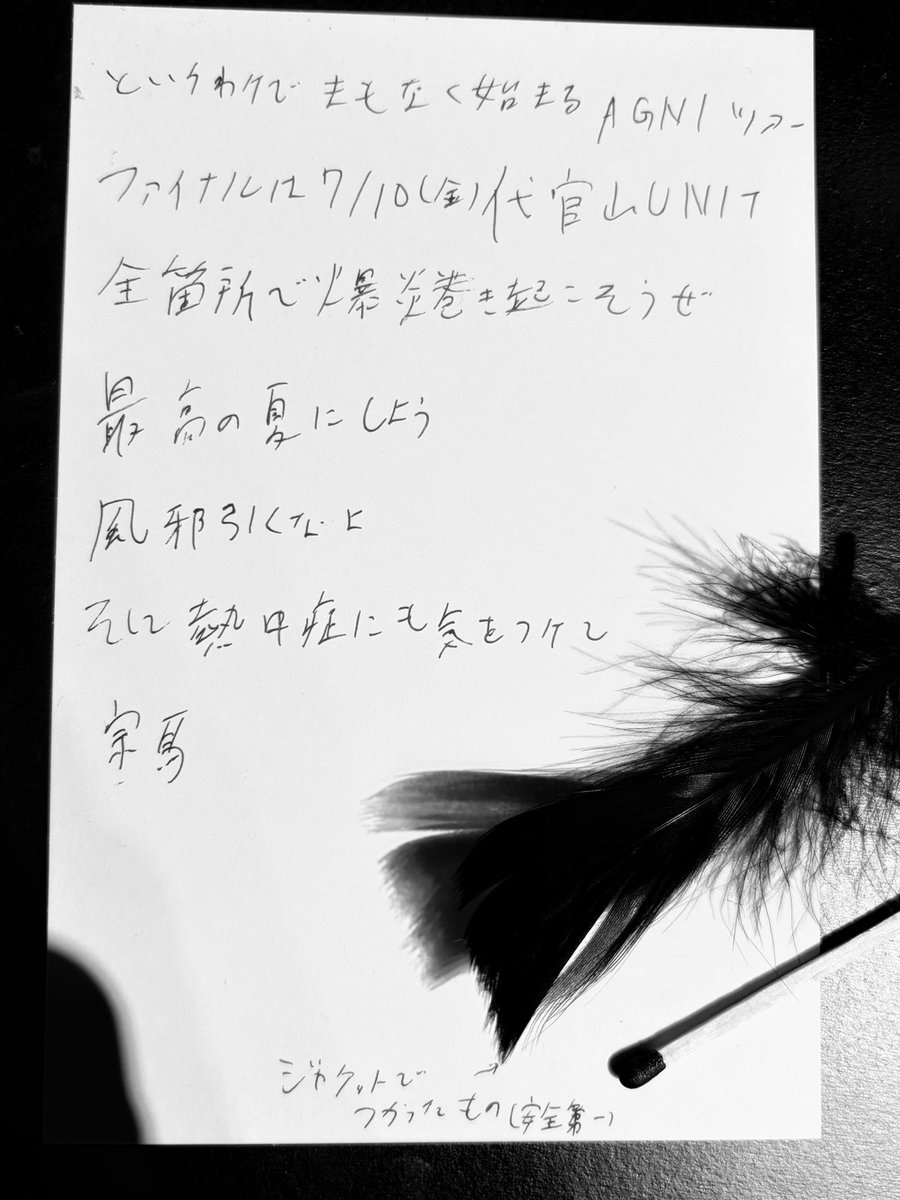 というわけで まもなく始まる AGNI ツアー
ファイナルは7/10(金)代官山UNIT
全箇所で爆炎巻き起こそうぜ
最高の夏にしよう
風邪引くなよ
そして熱中症にも気をつけて
宗馬
ジャケットで →
つかったもの(安全第一)